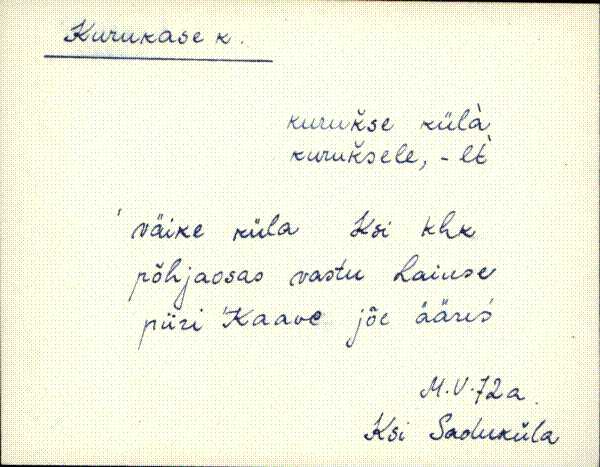 Kurukase k.
kurukšse külà
kurukšsele, -lt̀
'väike küla Ksi khk
põhjaosas vastu Laiuse
piiri 'Kaave jõe ääres
M.V.72a.
Ksi Saduküla